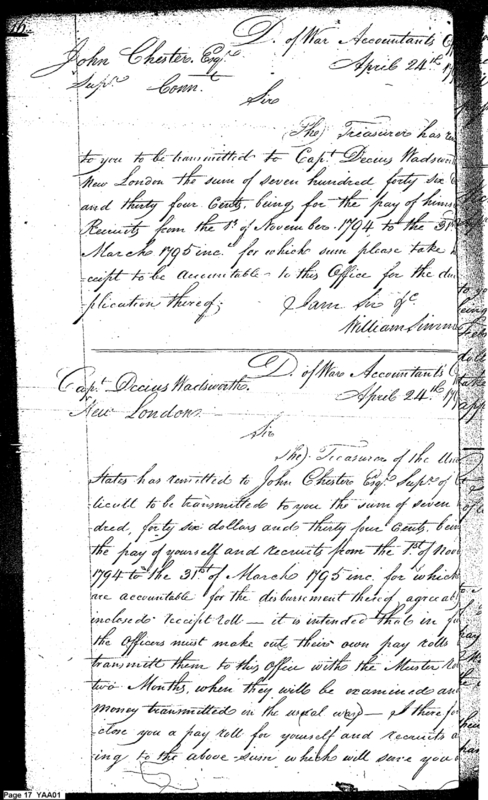 D. of War Accountants
John Chester Esqr. April 24th. 17
Supr. Connt.
Sir
The Treasurer has
to you to be transmitted to Capt. Decius Wadsw
New London the sum of seven hundred forty six
and thirty four Cents, being for the pay of himse
Recruits from the 1st. of November 1794 to the 31st
March 1795 inc. for which sum please take
ceipt to be accountable to this Office for the due
plication thereof; I am Sir &c.
William Simm
D. of War Accountants
Capt. Decius Wadsworth. April 24th. 17
New London.
Sir
The Treasurer of the Uni
States has remitted to John Chester Esqr. Supr. of
ticutt to be transmitted to you the sum of seven
dred, forty six dollars and thirty four Cents, bein
the pay of yourself and recruits from the 1st. of Nov
1794 to the 31st. of March 1795 inc. for which
are accountable for the disbursement thereof agreeab
inclosed receipt roll — it is intended that in fu
the Officers must make out their own pay rolls
transmitt them to this Office with the Muster Ro
two Months, when they will be examined and
money transmitted in the usual way — I there
close you a pay roll for yourself and recruits a
ing to the above sum which will serve you
Page 17 YAA01